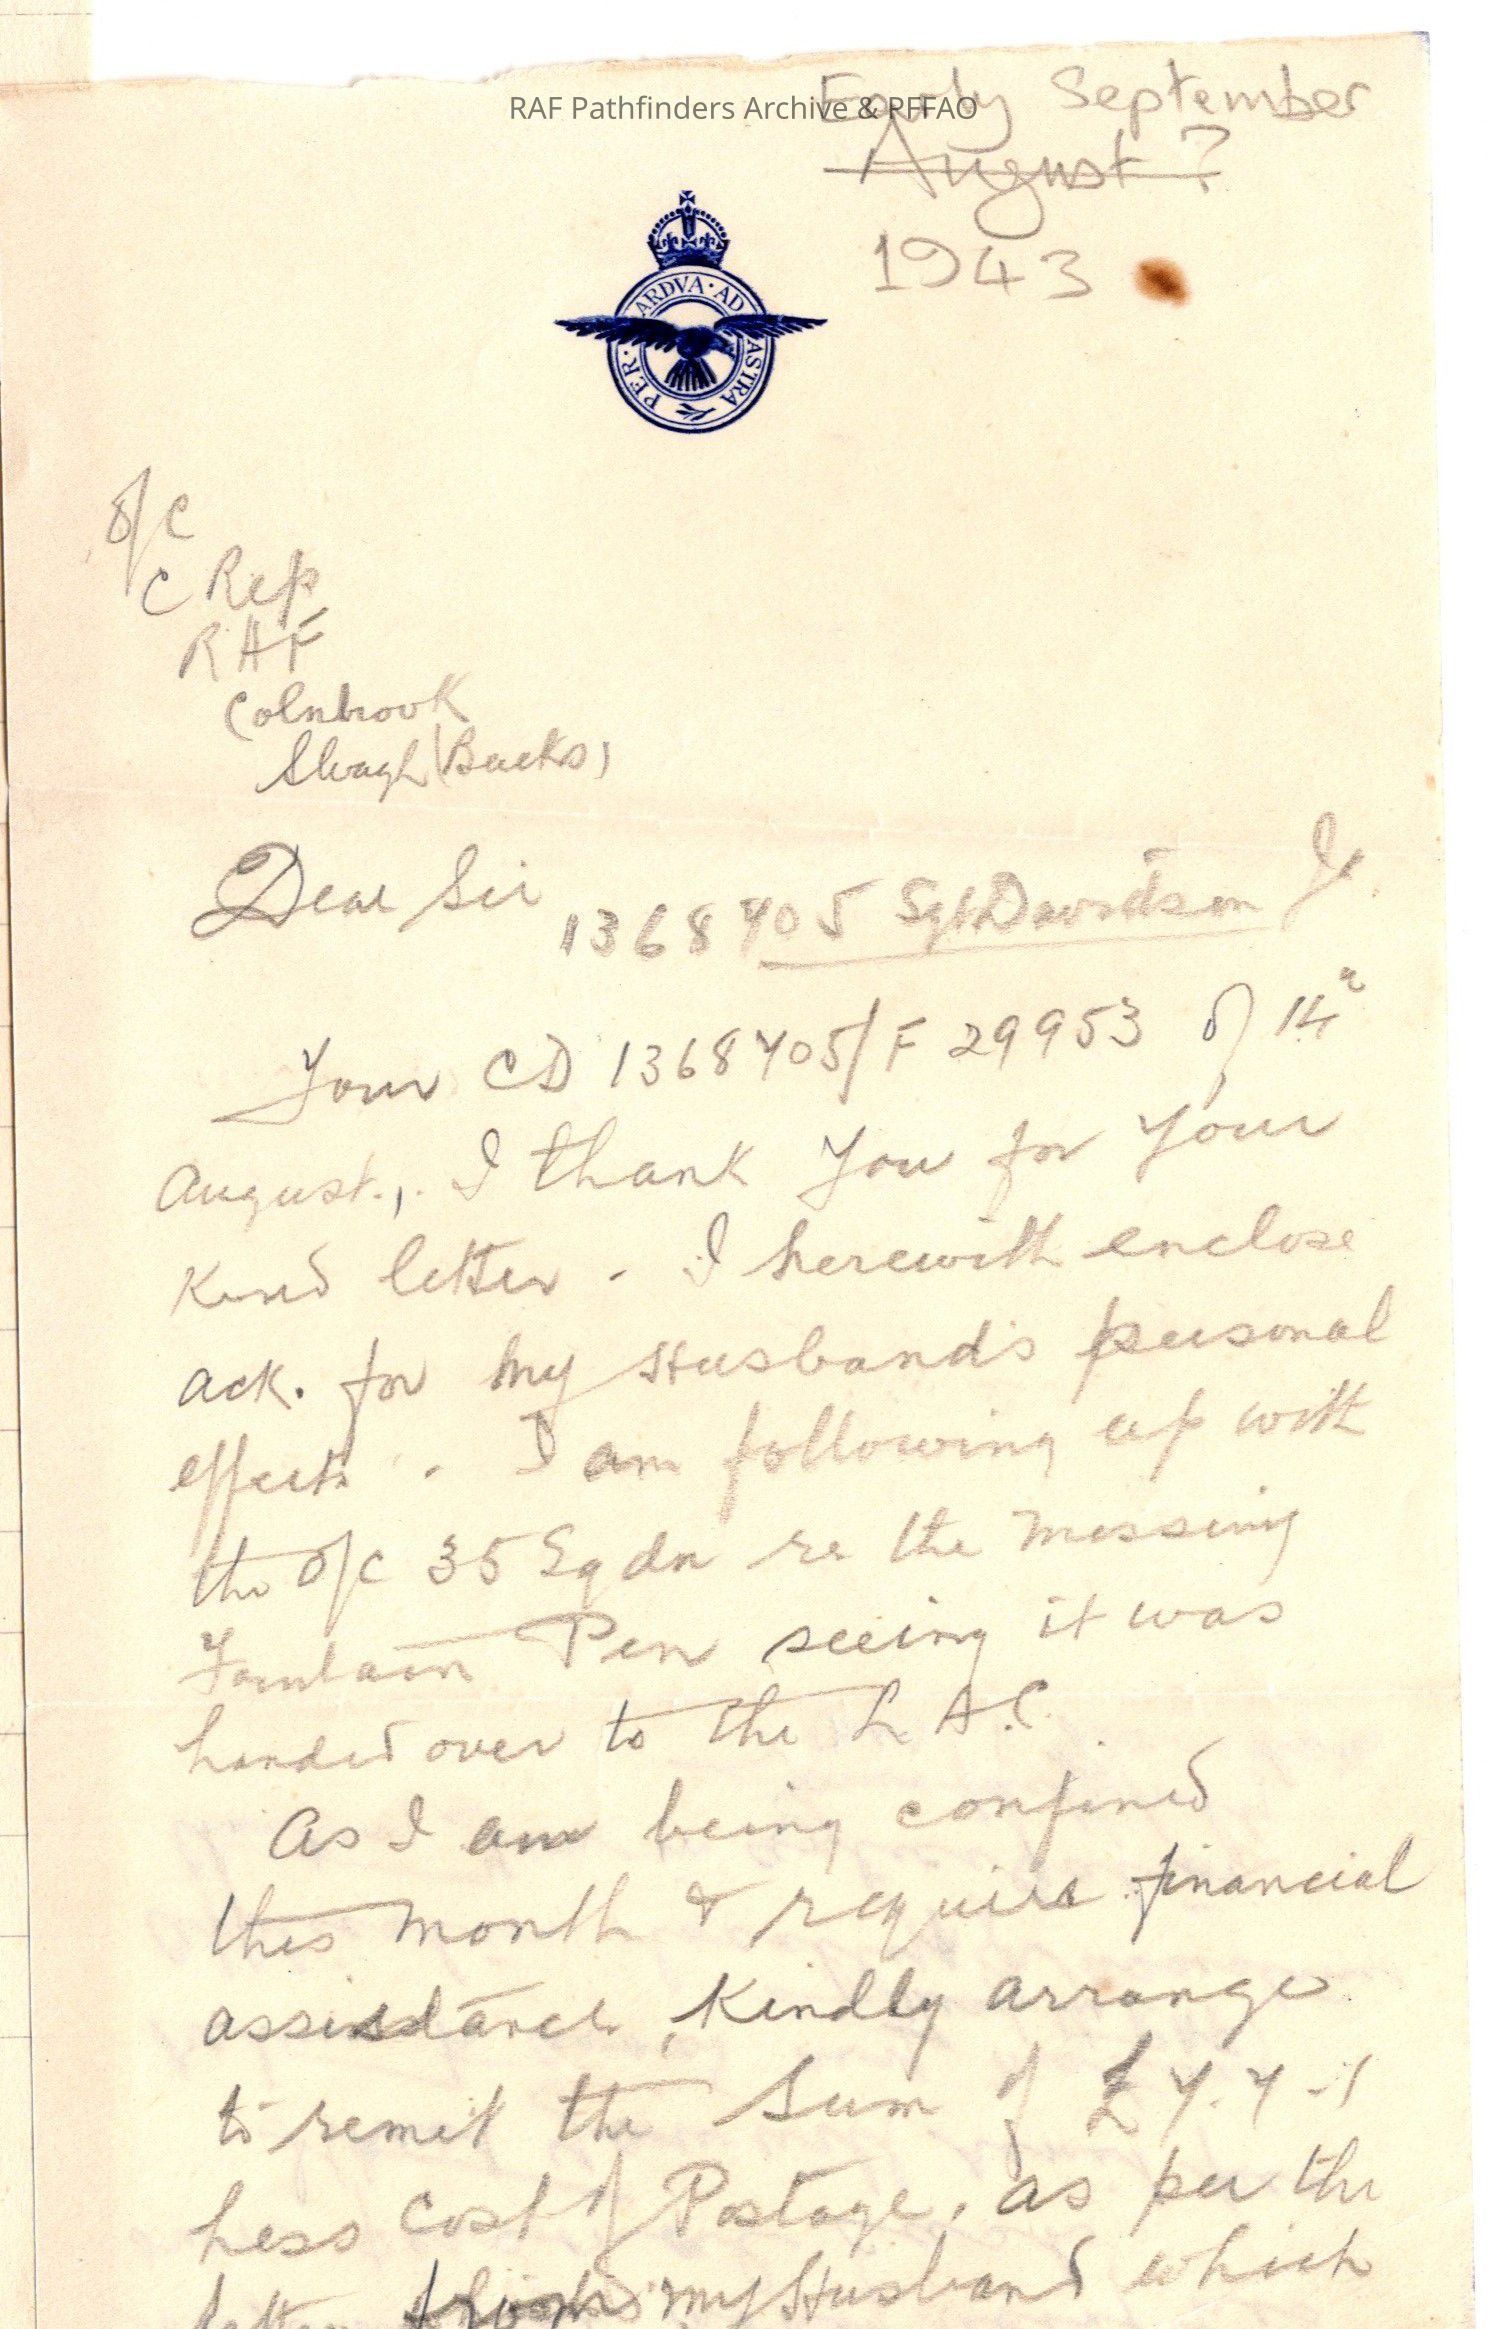 RAF Pathfinders Archive & PFFAO
Early September
August ?
1943
PER · ARDVA · AD ASTRA
O/C
C Rep
RAF
Colnbrook
Slough (Bucks)
Dear Sir
1368705 Sgt Davidson J.
Your CD 1368705/F 29953 of 14th
August., I thank you for your
kind letter. I herewith enclose
ack. for my Husband's personal
effects. I am following up with
the O/C 35 Sqdn re the missing
Fountain Pen seeing it was
handed over to the L.A.C.
As I am being confined
this month & require financial
assistance, Kindly arrange
to remit the Sum of £7.7.-1
Less Cost of Postage, as per the
letter my Husband which